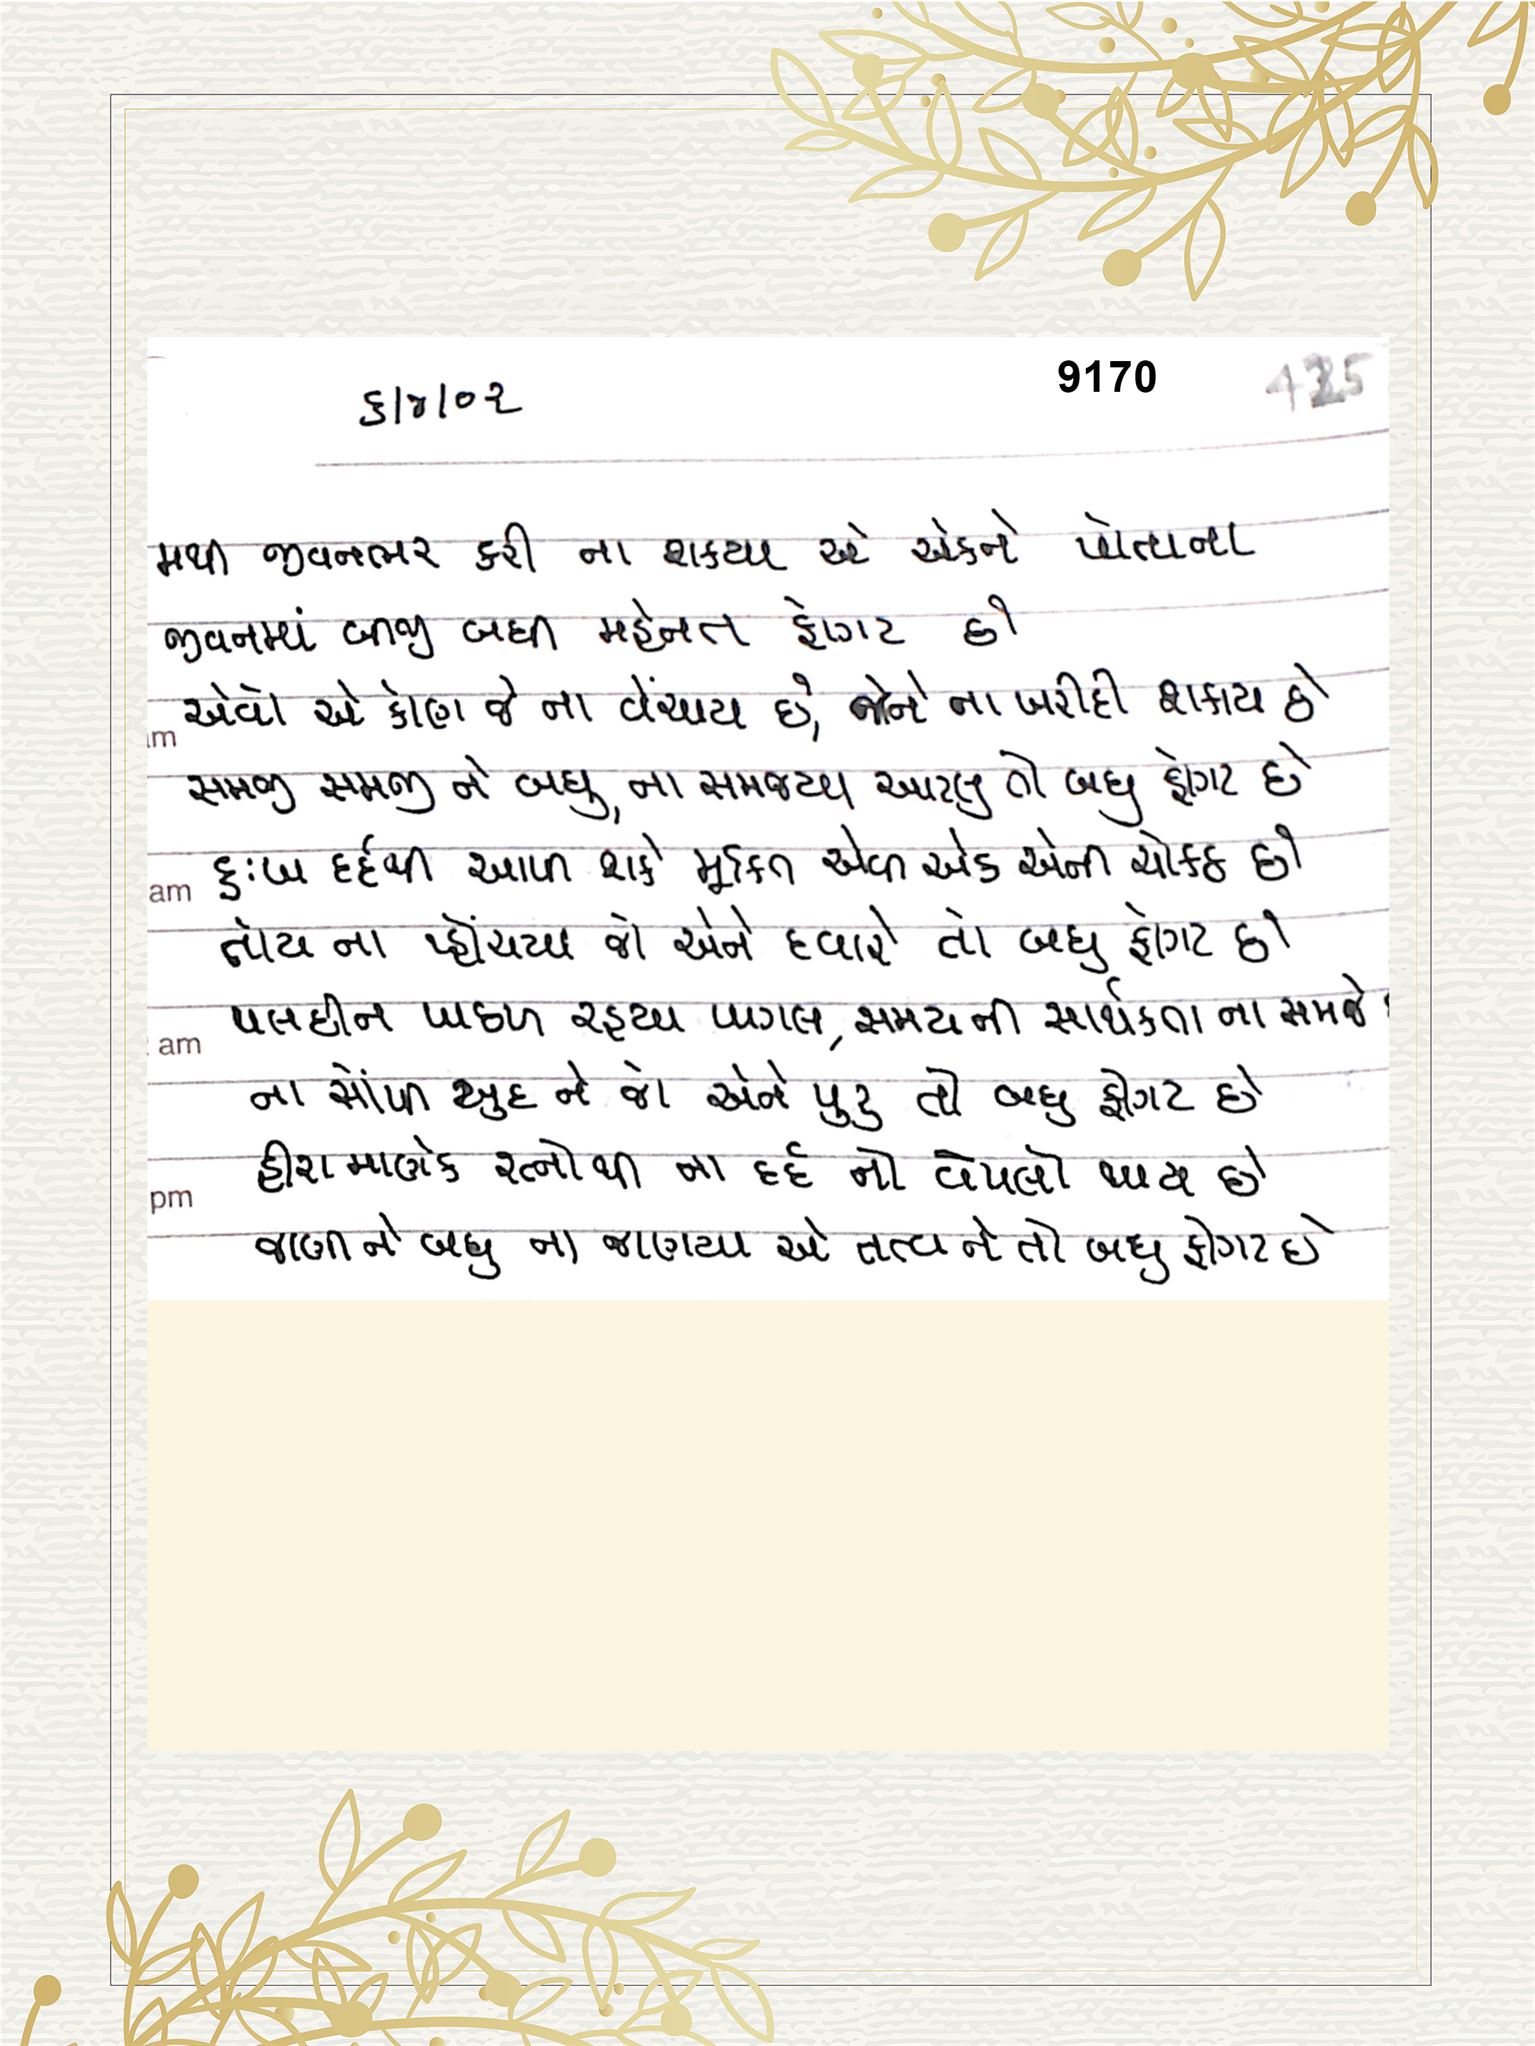 ૬/૪/૦૨
9170
મથી જીવનભર કરી ના શકયા એ એકને પોતાના
જીવનમાં બીજી બધી મહેનત ફોગટ છે
એવો એ કોણ જે ના વેંચાય છે, જેને ના ખરીદી શકાય છે
am
સમજી સમજી ને બધુ, ના સમજયા આટલુ તો બધુ ફોગટ છે
દુઃખ દર્દથી આપી શકે મૂક્તિ એવી એક એની ચોકઠ છે
am
તોય ના પહોંચયા જો એને દવારે તો બધુ ફોગટ છે
પલહીન પાછળ રહયા પાગલ, સમય ની સાર્થકતા ના સમજે
am
ના સોંપી ખુદ ને જો એને પુરુ તો બધુ ફોગટ છે
હીરા માણેક રત્નો થી ના દર્દ નો વેપલો થાય છે
pm
જાણી ને બધુ ના જાણયા એ તત્વ ને તો બધુ ફોગટ છે